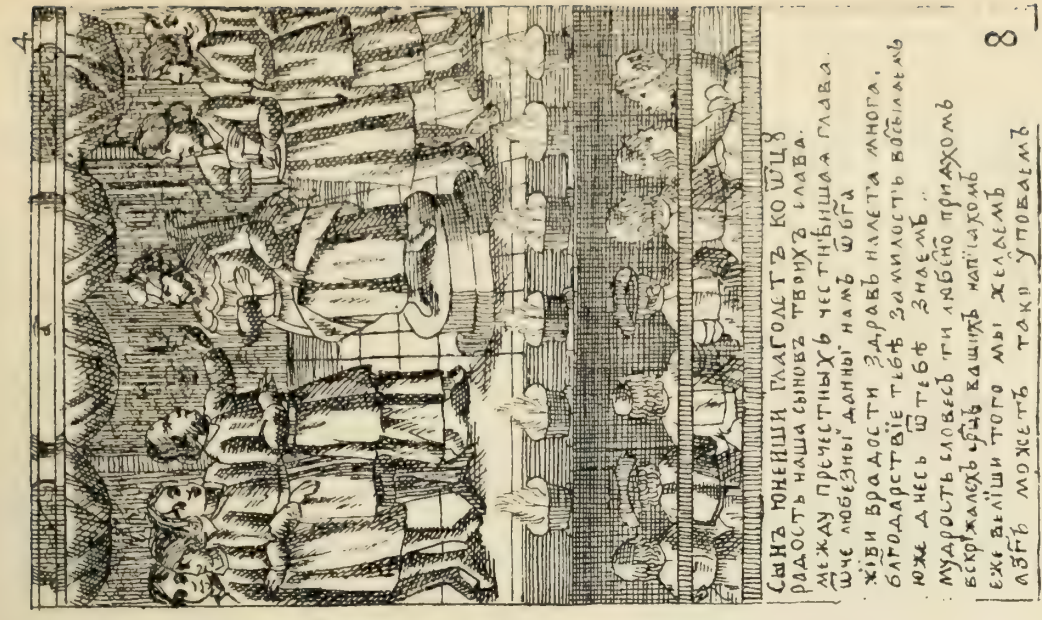 4
СЫНЪ ЮНЕИШИ ГЛАГОЛЕТЪ КО ѾЦꙊ
РАДОСТЬ НАША СЫНОВЪ ТВОИХЪ СЛАВА.
МЕЖДУ ПРЕЧЕСТНЫХЪ ЧЕСТНѢЙША ГЛАВА.
ѾЧЕ ЛЮБЕЗНЫЙ ДАННЫЙ НАМЪ Ѿ БГА
ЖЇВИ ВРАДОСТИ ЗДРАВЬ НАЛЕТА МНОГА.
БЛГОДАРСТВЇЕ ТЕБѢ ЗАМИЛОСТЬ ВОСЫЛАЕМЪ
ЮЖЕ ДНЕСЬ Ѿ ТЕБѢ ЗНАЕМЪ..
МУДРОСТЬ СЛОВЕСЪ ТИ ПРИАХОМЪ
ВАШИХЪ НАПІСАХОМЪ
ЕЖЕ ВЕЛІШИ ТОГО МЫ ЖЕЛАЕМЪ
МОЖЕТЪ ТАКО УПОВАЕМЪ
8